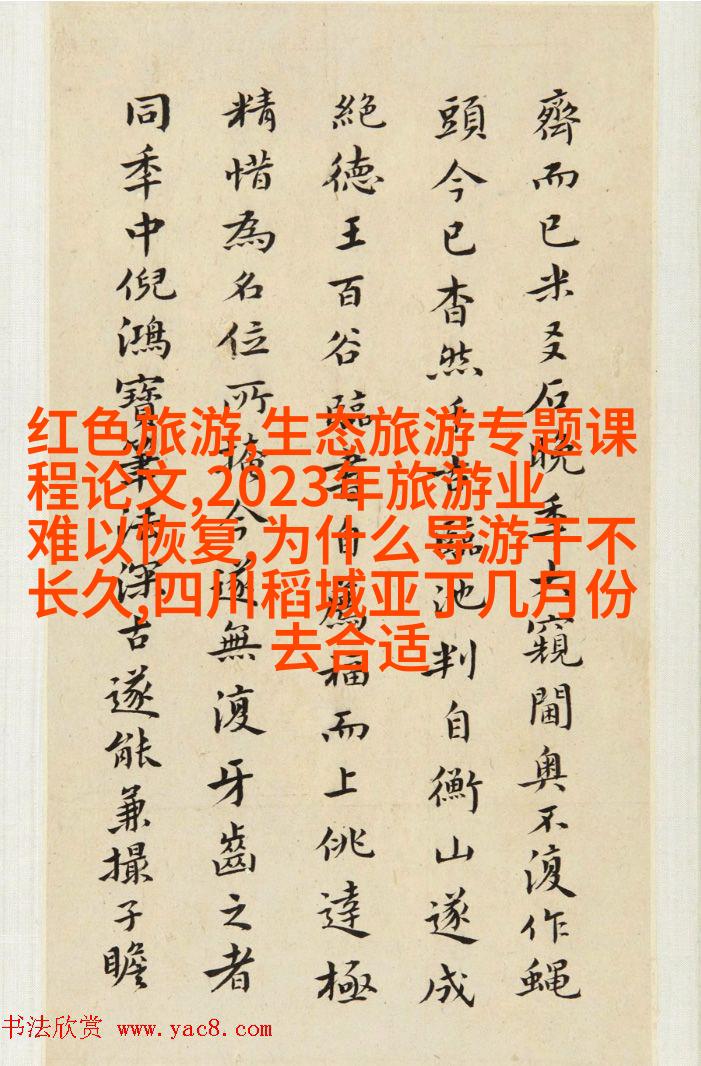 齊而已米友石晚季大窺閫奥不復作蝇
頭今已杳然臨池判自衡山遂成
絶德王百谷臨者由薦福而上佻達極
精惜為名位所掩今遂無復牙齒之者
同季中倪鴻寶筆法深古遂能兼撮子瞻
红色旅游,生态旅游专题课
程论文,2023年旅游业
难以恢复,为什么导游干不
长久,四川稻城亚丁几月份
去合适
书法欣赏 www.yac8.com